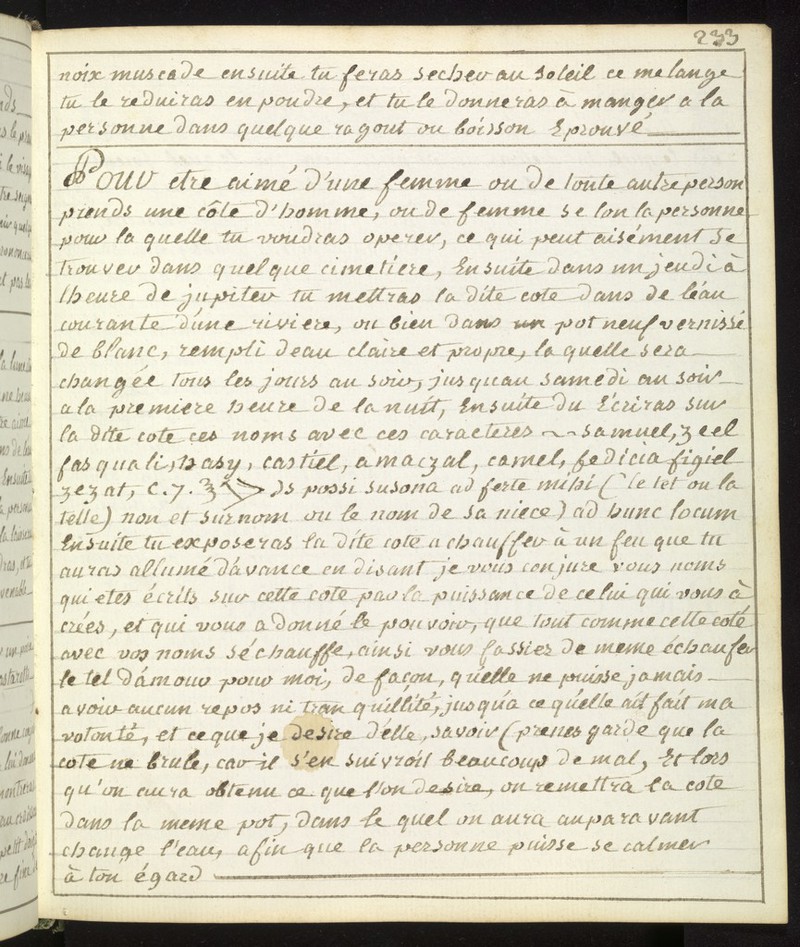 233
noix muscade ensuite tu feras secher au soleil ce melange
tu le reduiras en poudre, et tu le donneras à manger a la
personne dans quelque ragout ou boisson Eprouvé
Pour etre aimé d'une femme ou de toute autre person
prends une côte d'homme, ou de femme se lon la personne
pour la quelle tu voudras operer, ce qui peut aisément se
trouver dans quelque cimetiere, Ensuite dans un jeudi à
lheure de jupiter tu mettras la dite cote dans de léau
courante dune riviere, ou bien dans un pot neuf vernissé
de blanc, rempli deau claire et propre, la quelle sera
changée tous les jours au soir, jusquau samedi au soir
a la premiere heure de la nuit, Ensuite du Ecriras sur
la dite cote ces noms avec ces caracteres ~~ samuel, zeel
fas quali, hasy, castiel, amaczal, camel, fedicia figiel
zezat, c. 7. ds possi susona ad ferte mihi (le tet ou la
telle) non et surnom ou le nom de sa niece) ad hunc locum
Ensuite tu exposeras la dite cote a chauffer à un feu que tu
auras allumé davance en disant je vous conjure vous noms
qui etes écrits sur cette cote par la puissance de celui qui vous à
crées, et qui vous a donné le pouvoir, que tout comme cette coté
avec vos noms séchauffe, ainsi vous fassiez de meme échaufer
le tel damour pour moi, de façon, quelle ne puisse jamais
avoir aucun repos ni tran quillité, jusqu'a ce quelle ait fait ma
volonté, et ce que je desire d'elle, savoir (prenes garde que la
cote ne brule, car il s'en suivroit beaucoup de mal, Et lors
qu'on aura obtenu ce que l'on desire, on remettra la cote
dans la meme pot, dans le quel on aura aupara vant
change l'eau, afin que la personne puisse se calmer
à ton égard